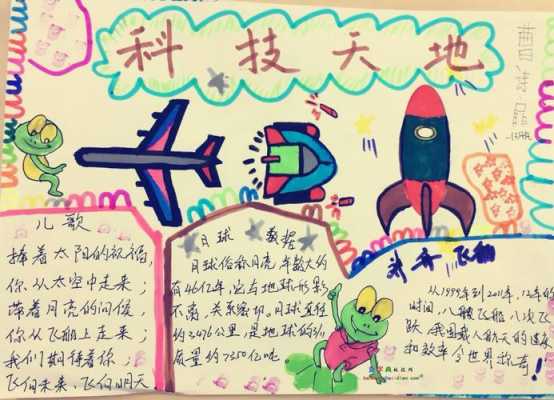 科技天地
儿歌
捧着太阳的祝福,
你从太空中走来;
带着月亮的问候,
你从飞船上走来;
我们期待着你;
飞向未来、飞向明天
月球 数据
月球俗称月亮,年龄大约
有46亿年,它与地球形影
不离,关系密切,月球直径
约3476公里,是地球的3/11
质量约7350亿吨
从1999年到2011年,12年的
时间,八艘飞船,八次飞
跃,我国载人航天的速度
和效率令世界称奇!